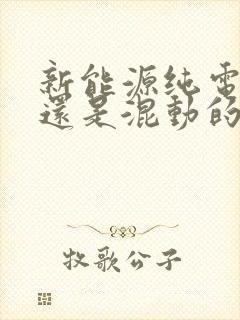 新能源纯電
還是混動的
牧歌公子